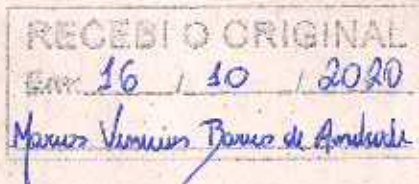 RECEBI O ORIGINAL
Em: 16 / 10 / 2020
Marcos Vinicius Barros de Andrade